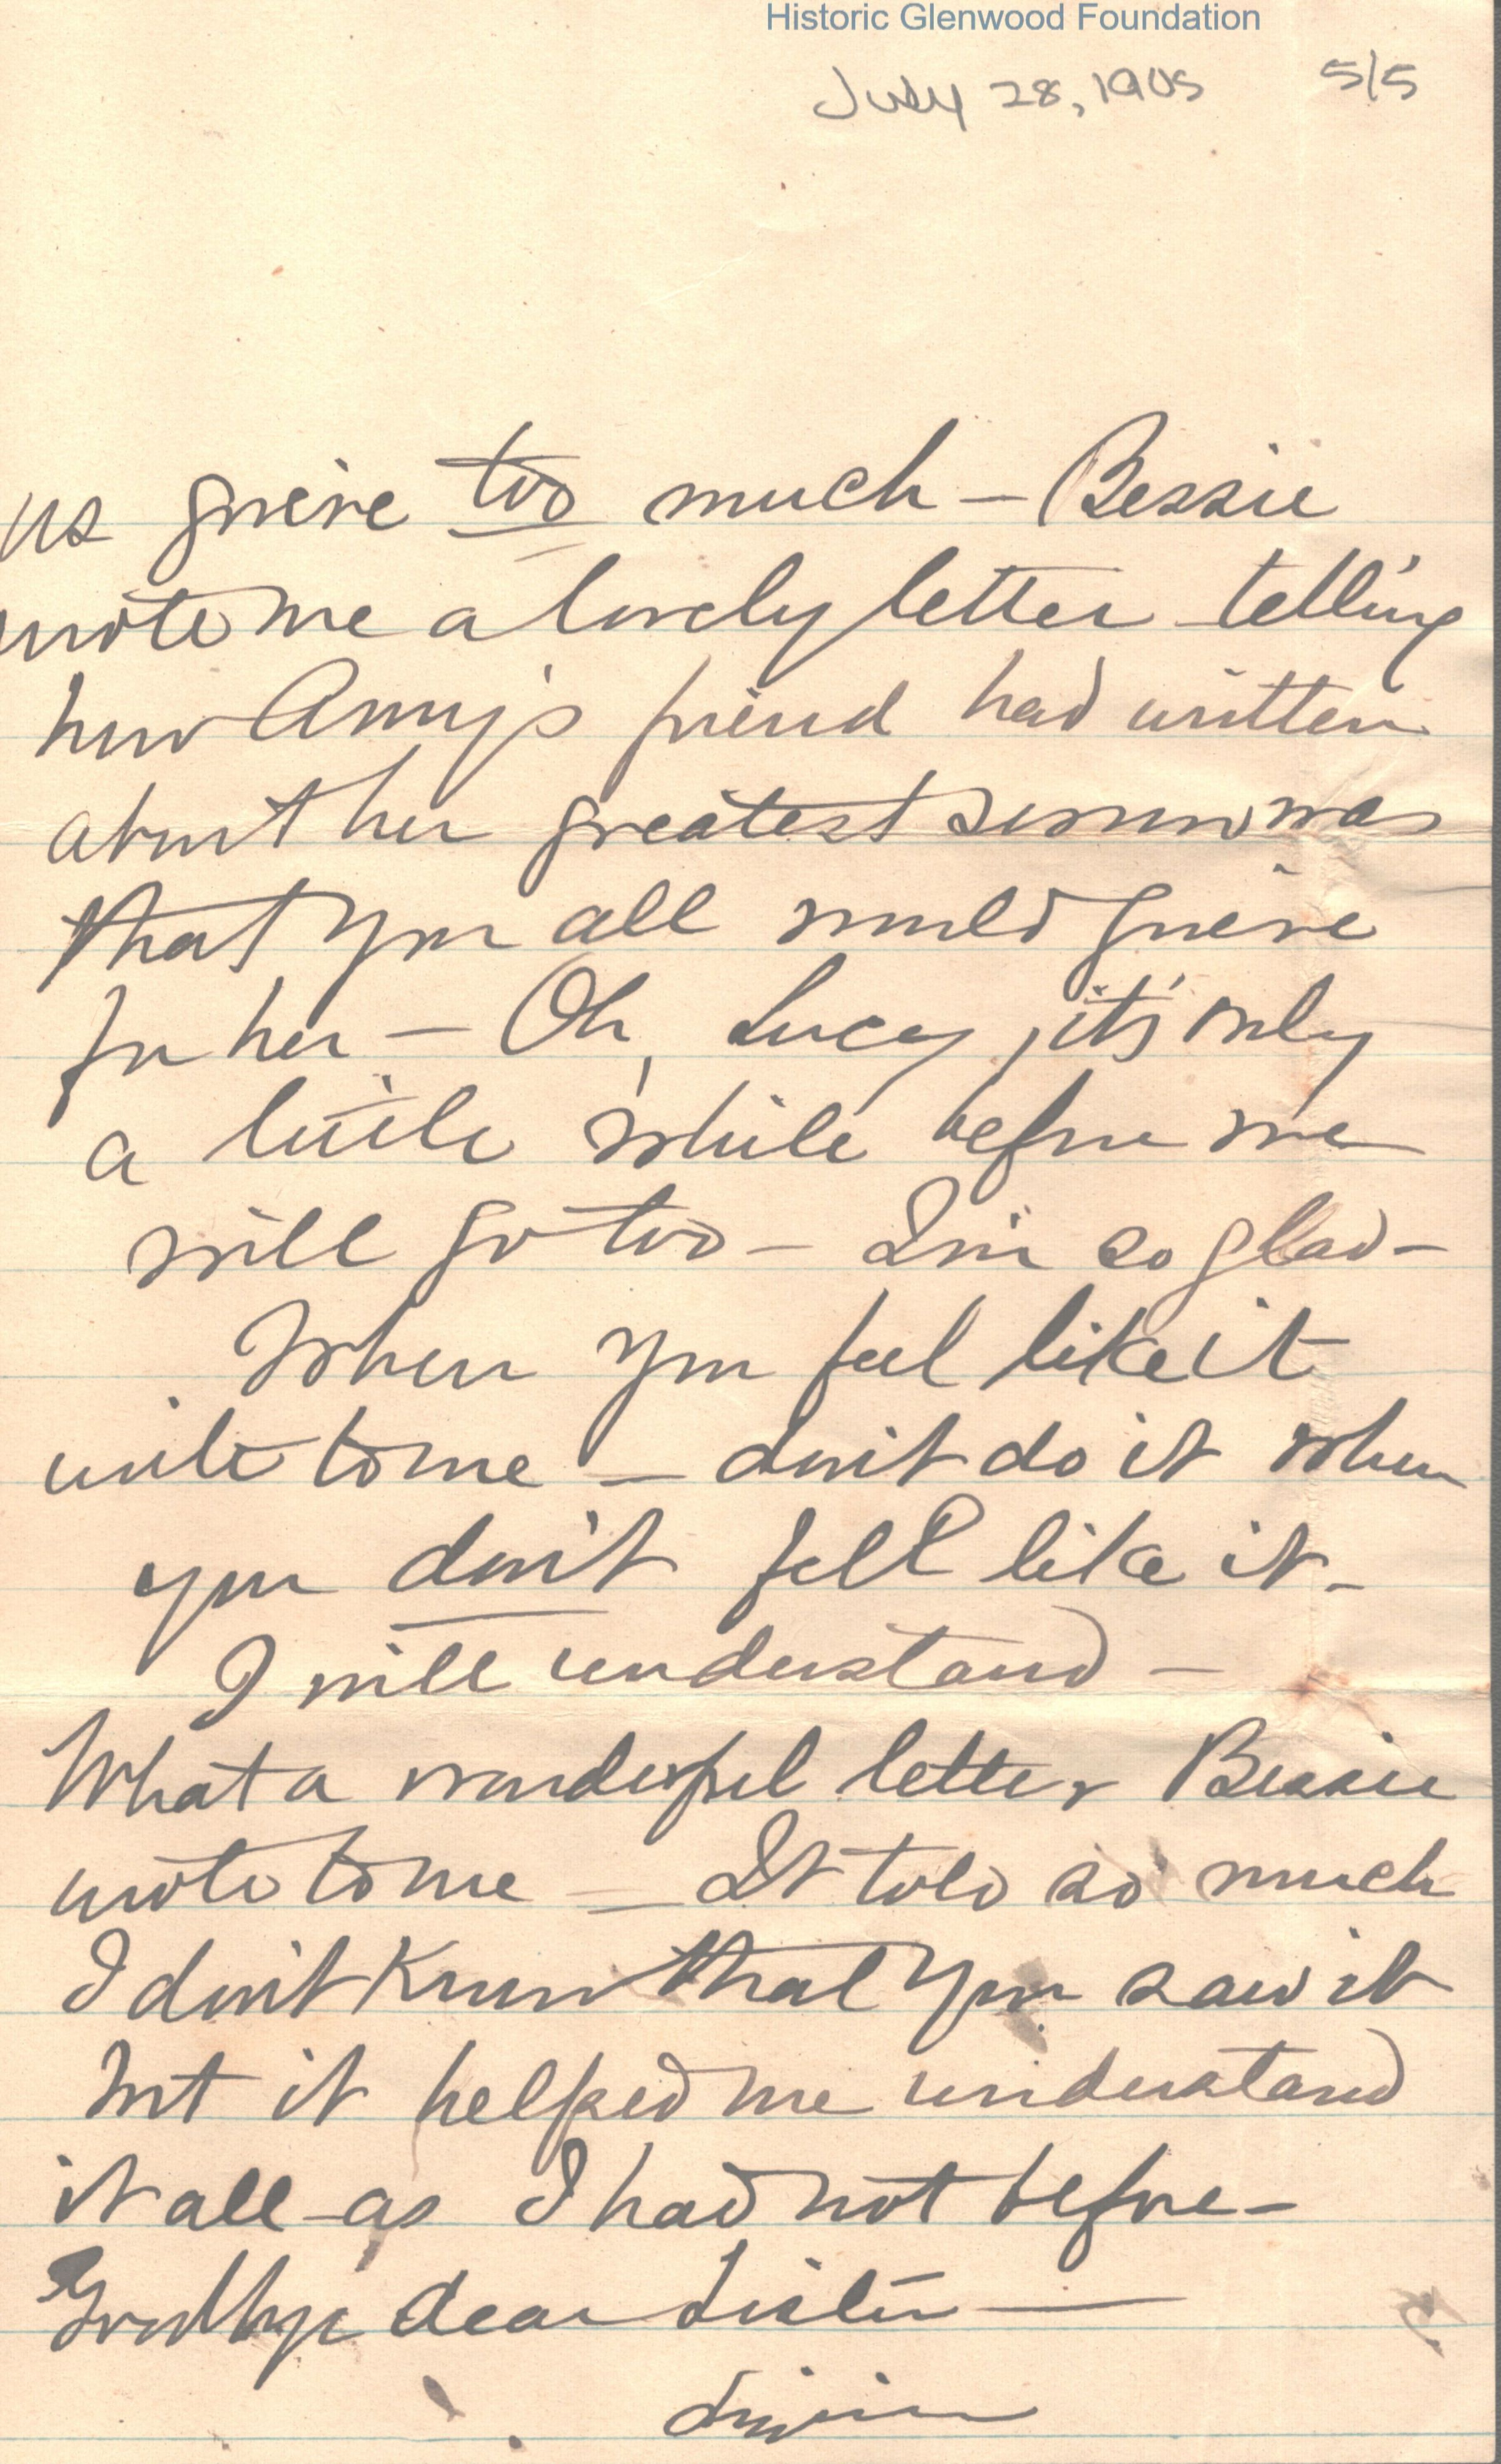 Historic Glenwood Foundation
July 28, 1905 5/5
us grieve too much – Bessie
wrote me a lovely letter telling
how Amy's friend had written
about her greatest sorrow was
that you all would grieve
for her – Oh, Lucy, it's only
a little while before we
will go too – I'm so glad –
When you feel like it
write to me – don't do it when
you don't fell like it –
I will understand –
What a wonderful letter Bessie
wrote to me – It told so much
I don't know that you saw it
but it helped me understand
it all – as I had not before –
Goodbye dear Sister –